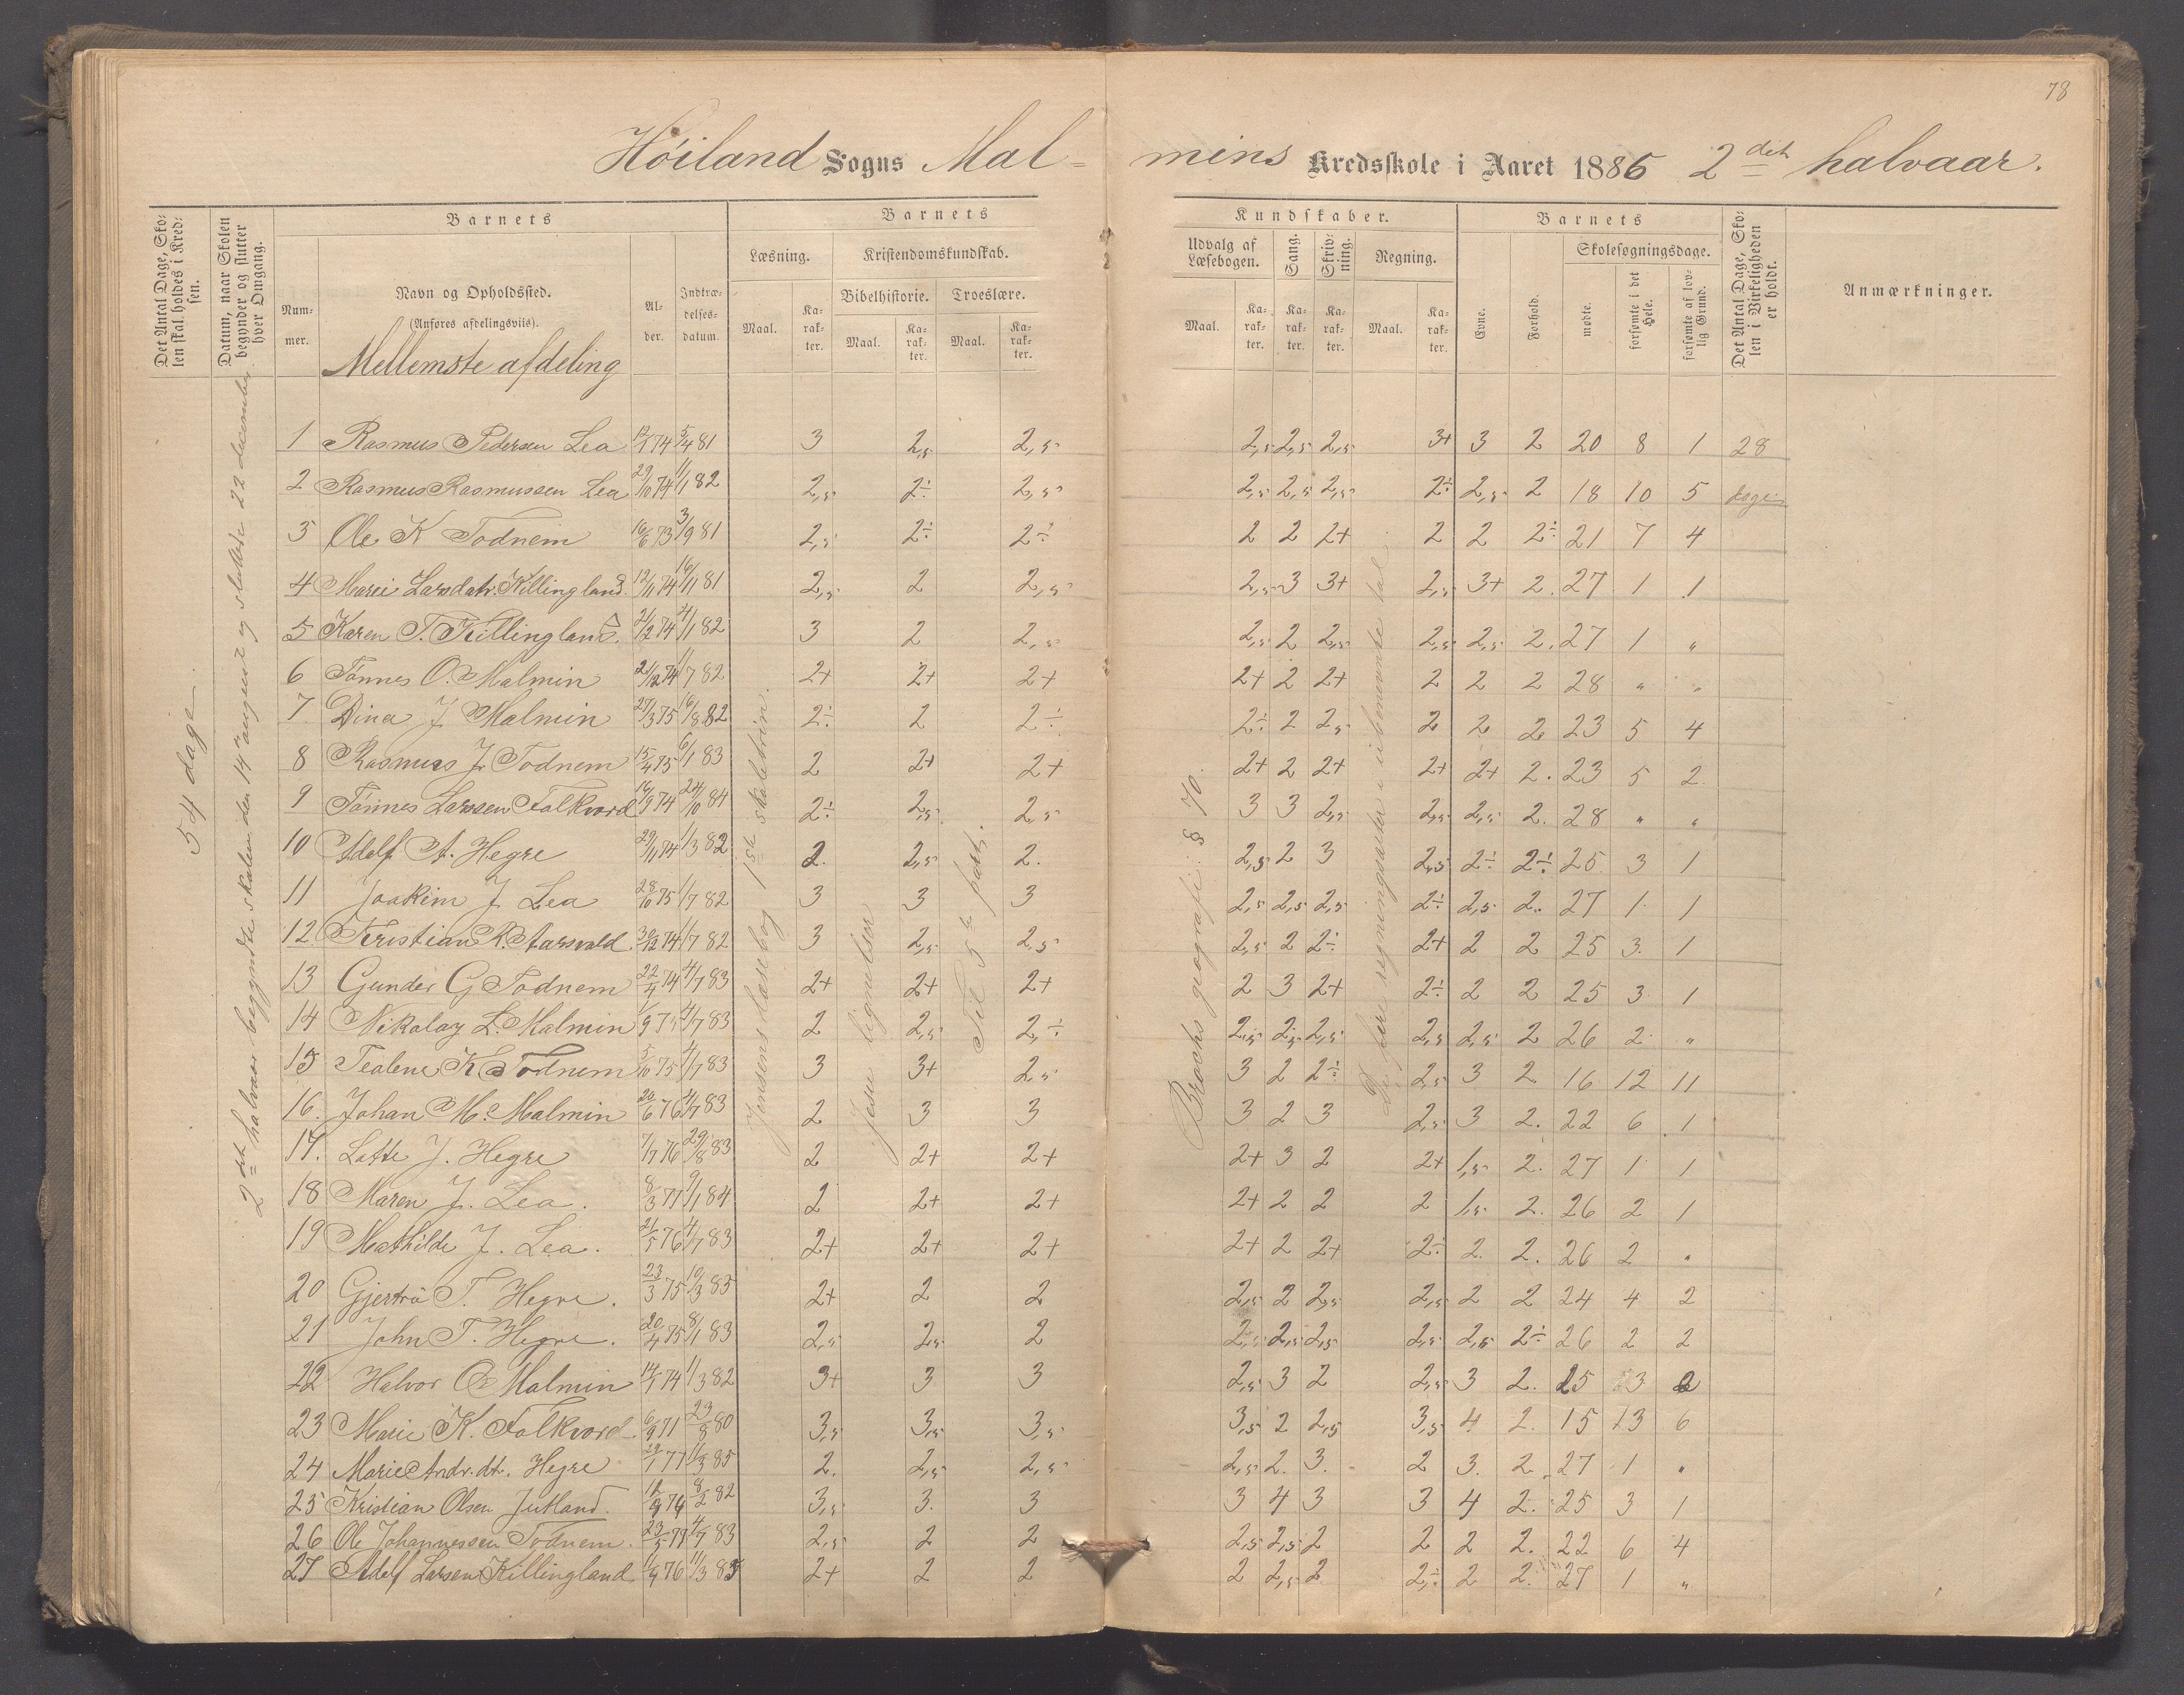 78
Höiland Sogns Malmins Kredsskole i Aaret 1886 2det halvaar.
Det Antal Dage, Skolen skal holdes i Kredsen.
Datum, naar Skolen begynder og slutter hver Omgang.
Barnets
Nummer.
Navn og Opholdssted.
(Anføres afdelingsviis).
Mellemste afdeling
Alder.
Indtrædelsesdatum.
Barnets Kundskaber.
Læsning. Kristendomskundskab. Udvalg af Læsebogen. Sang. Skrivning. Regning.
Bibelhistorie. Troeslære.
Maal. Karakter. Maal. Karakter. Maal. Karakter. Maal. Karakter. Karakter. Karakter. Maal. Karakter.
Barnets
Evne. Forhold. Skolesøgningsdage.
mødte. forsømte i det Hele. forsømte af lovlig Grund.
Det Antal Dage, Skolen i Virkeligheden er holdt.
Anmærkninger.
54 dage.
2det halvaar begyndte skolen den 14de august og sluttede 22 december.
Jensens læsebog 1ste skoletrin.
Jesu lignelser
Til 5te part.
Brochs geografi: § 70.
De fire regningsarter i ubenevnte tal.
1 Rasmus Pedersen Lea 12/1 74 5/4 81 3 2,5 2,5 2,5 2,5 2,5 3+ 3 2 20 8 1 28
2 Rasmus Rasmussen Lea 29/10 74 11/1 82 2,5 2÷ 2,5 2,5 2,5 2,5 2÷ 2,5 2 18 10 5 dage
3 Ole K Todnem 16/6 73 3/9 81 2,5 2÷ 2÷ 2 2 2+ 2 2 2÷ 21 7 4
4 Marie Larsdatr. Killingland. 12/11 74 16/11 81 2,5 2 2,5 2,5 3 3+ 2,5 3+ 2. 27 1 1
5 Karen T. Killingland. 2/2 74 4/1 82 3 2 2,5 2,5 2 2,5 2,5 2,5 2. 27 1 "
6 Tönnes O. Malmin 21/12 74 1/7 82 2+ 2+ 2+ 2+ 2 2+ 2 2 2 28 " "
7 Dina J Malmin 27/3 75 16/8 82 2÷ 2 2÷ 2÷ 2 2,5 2 2 2 23 5 4
8 Rasmus J. Todnem 15/4 75 6/1 83 2 2+ 2+ 2+ 2 2+ 2+ 2+ 2. 23 5 2
9 Tönnes Larssen Folkvord 16/9 74 24/10 84 2÷ 2,5 2,5 3 3 2,5 2,5 2,5 2. 28 " "
10 Adolf A. Hegre 29/11 74 1/3 82 2. 2,5 2. 2,5 2 3 2,5 2÷ 2÷ 25 3 1
11 Joakim J Lea 28/10 75 1/7 82 3 3 3 2,5 2,5 2,5 2÷ 2,5 2. 27 1 1
12 Kristian R. Aarsvold. 30/12 74 1/7 82 3 2,5 2,5 2,5 2 2÷ 2+ 2 2 25 3 1
13 Gunder G Todnem 22/4 74 4/7 83 2+ 2+ 2+ 2 3 2+ 2÷ 2 2 25 3 1
14 Nikolay L. Malmin 1/9 75 4/7 83 2 2,5 2,÷ 2,5 2,5 2,5 2,5 2,5 2 26 2 "
15 Tealene K Todnem 5/10 75 4/7 83 3 3+ 2,5 3 2 2÷ 2,5 3 2 16 12 11
16. Johan M. Malmin 20/6 76 4/7 83 2 3 3 3 2 3 2,5 3 2. 22 6 1
17. Lotte J. Hegre 7/7 76 29/8 83 2 2+ 2+ 2+ 3 2 2+ 1,5 2. 27 1 1
18 Maren J. Lea. 8/3 77 9/1 84 2 2+ 2+ 2+ 2 2 2 1,5 2. 26 2 1
19 Mathilde J. Lea. 21/5 76 4/7 83 2+ 2+ 2+ 2+ 2 2+ 2÷ 2. 2. 26 2 "
20 Gjertrü T. Hegre. 23/3 75 10/3 83 2+ 2 2 2,5 2 2,5 2,5 2 2 24 4 2
21 John T. Hegre. 20/4 75 8/1 83 2,5 2,5 2 2,5 2,5 2,5 2,5 2,5 2÷ 26 2 2
22 Halvor O. Malmin 14/1 74 1/3 82 3+ 3 3 2,5 3 2 2,5 3 2. 25 3 2
23 Marie K. Folkvord. 6/9 71 23/8 80 3,5 3,5 3,5 3,5 2 2,5 3,5 4 2. 15 13 6
24 Marie Andr.dt. Hegre 29/1 77 11/3 85 2. 2,5 2,5 2,5 2. 3. 2 3. 2. 27 1 "
25 Kristian Olsen Jutland. 12/9 74 8/2 82 3,5 3. 3 3 4 3 3 4 2. 25 3 1
26 Ole Johannessen Todnem. 23/5 77 4/7 83 2,5 2 2 2,5 2,5 2 2 2 2. 22 6 4
27 Adolf Larsen Killingland 11/4 76 11/3 85 2+ 2 2 2 2,5 2 2,÷ 2 2. 27 1 "